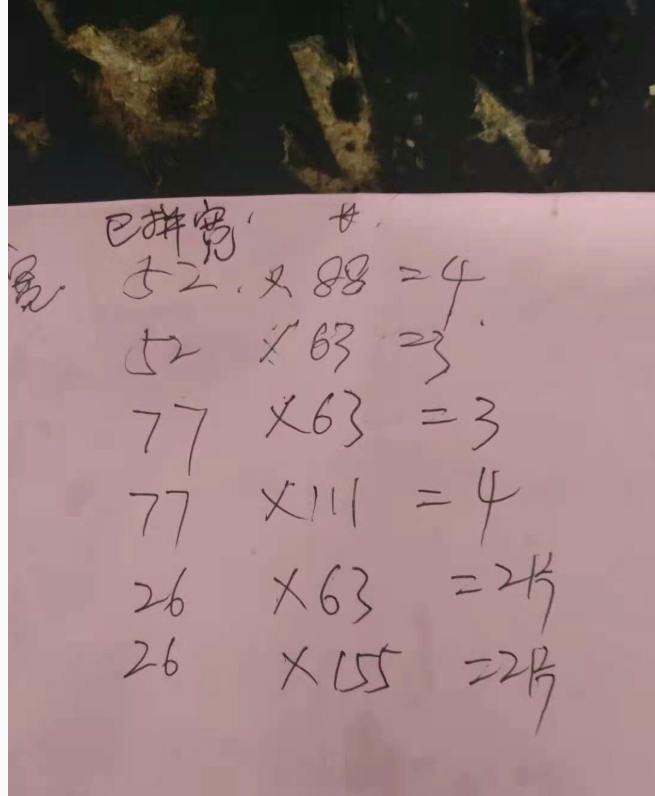 已拼宽 长
宽 52 × 88 = 4
52 × 63 = 3
77 × 63 = 3
77 × 111 = 4
26 × 63 = 2片
26 × 155 = 2片